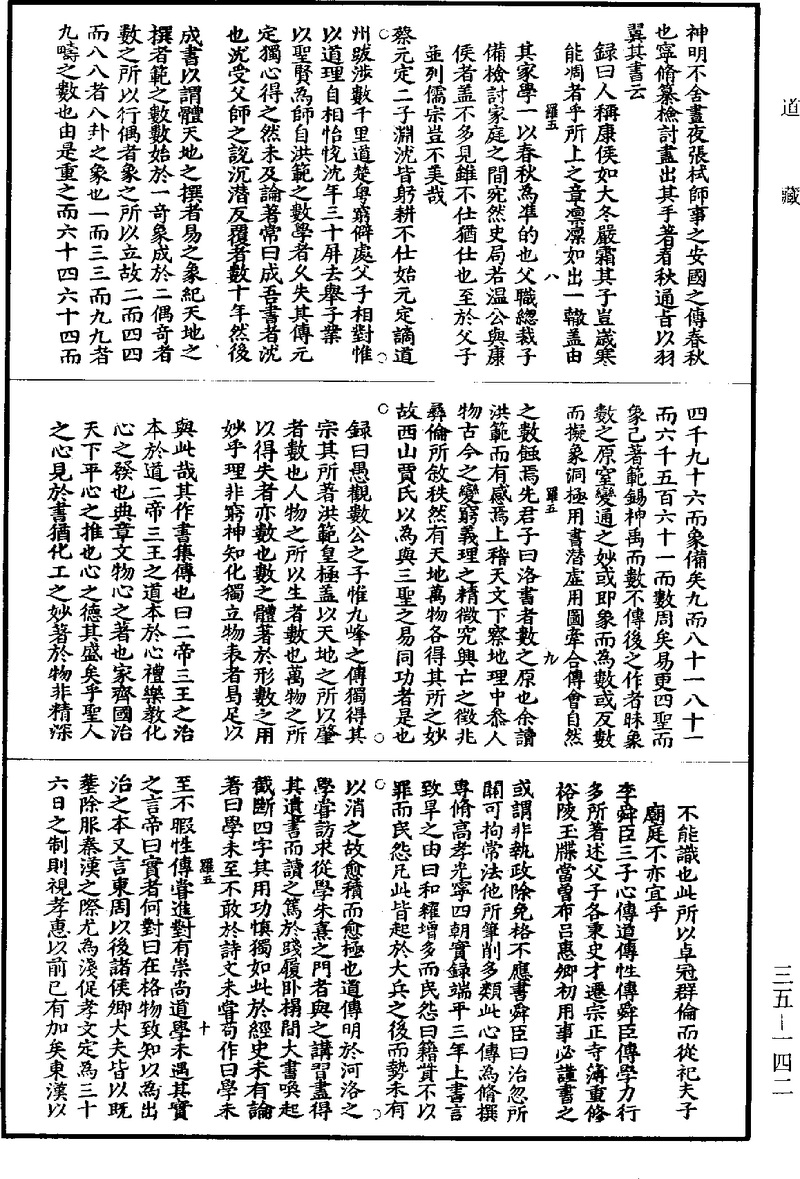 道藏
神明不舍晝夜張栻師事之安國之傳春秋
也寧脩纂檢討盡出其手著春秋通旨以羽
翼其書云
錄曰人稱康侯如大冬嚴霜其子豈歲寒
能凋者乎所上之章凛凛如出一轍盖由
羅五
八
其家學一以春秋為準的也父職緫裁子
備檢討家庭之間宛然史局若溫公與康
侯者盖不多見雖不仕猶仕也至於父子
並列儒宗豈不美哉
蔡元定二子淵沈皆躬耕不仕始元定謫道
州跋涉數千里道楚粤窮僻處父子相對惟
以道理自相怡悅沈年三十屏去舉子業
以聖賢為師自洪範之數學者久失其傳元
定獨心得之然未及論著常曰成吾書者沈
也沈受父師之說沉潜反覆者數十年然後
成書以謂體天地之撰者易之象紀天地之
撰者範之數數始於一奇象成於二偶奇者
數之所以行偶者象之所以立故二而四四
而八八者八卦之象也一而三三而九九者
九疇之數也由是重之而六十四六十四而
四千九十六而象備矣九而八十一八十一
而六千五百六十一而數周矣易更四聖而
象已著範錫神禹而數不傳後之作者昧象
數之原窒變通之妙或即象而為數或反數
而擬象洞極用書潜虛用圖牽合傳會自然
羅五
九
之數蝕焉先君子曰洛書者數之原也余讀
洪範而有感焉上稽天文下察地理中叅人
物古今之變窮義理之精微究興亡之徵兆
彝倫所敘秩然有天地萬物各得其所之妙
故西山賈氏以為與三聖之易同功者是也
錄曰愚觀數公之子惟九峰之傳獨得其
宗其所著洪範皇極盖以天地之所以肇
者數也人物之所以生者數也萬物之所
以得失者亦數也數之體著於形數之用
妙乎理非窮神知化獨立物表者曷足以
與此哉其作書集傳也曰二帝三王之治
本於道二帝三王之道本於心禮樂教化
心之發也典章文物心之著也家齊國治
天下平心之推也心之德其盛矣乎聖人
之心見於書猶化工之妙著於物非精深
不能識也此所以卓冠群倫而從祀夫子
廟庭不亦宜乎
李舜臣三子心傳道傳性傳舜臣傳學力行
多所著述父子各秉史才遷宗正寺簿重修
裕陵玉牒當曾布呂惠卿初用事必謹書之
或謂非執政除免格不應書舜臣曰治忽所
關可拘常法他所筆削多類此心傳為脩撰
專脩高孝光寧四朝實錄端平三年上書言
致旱之由曰和糴增多而民怨曰籍貲不以
罪而民怨凡此皆起於大兵之後而勢未有
以消之故愈積而愈極也道傳明於河洛之
學嘗訪求從學朱熹之門者與之講習盡得
其遺書而讀之篤於踐履卧榻間大書喚起
截斷四字其用功慎獨如此於經史未有論
著曰學未至不敢於詩文未嘗苟作曰學未
羅五
十
至不暇性傳嘗進對有崇尚道學未遇其實
之言帝曰實者何對曰在格物致知以為出
治之本又言東周以後諸侯卿大夫皆以既
塟除服秦漢之際尤為淺促孝文定為三十
六日之制則視孝惠以前已有加矣東漢以
三五—一四二